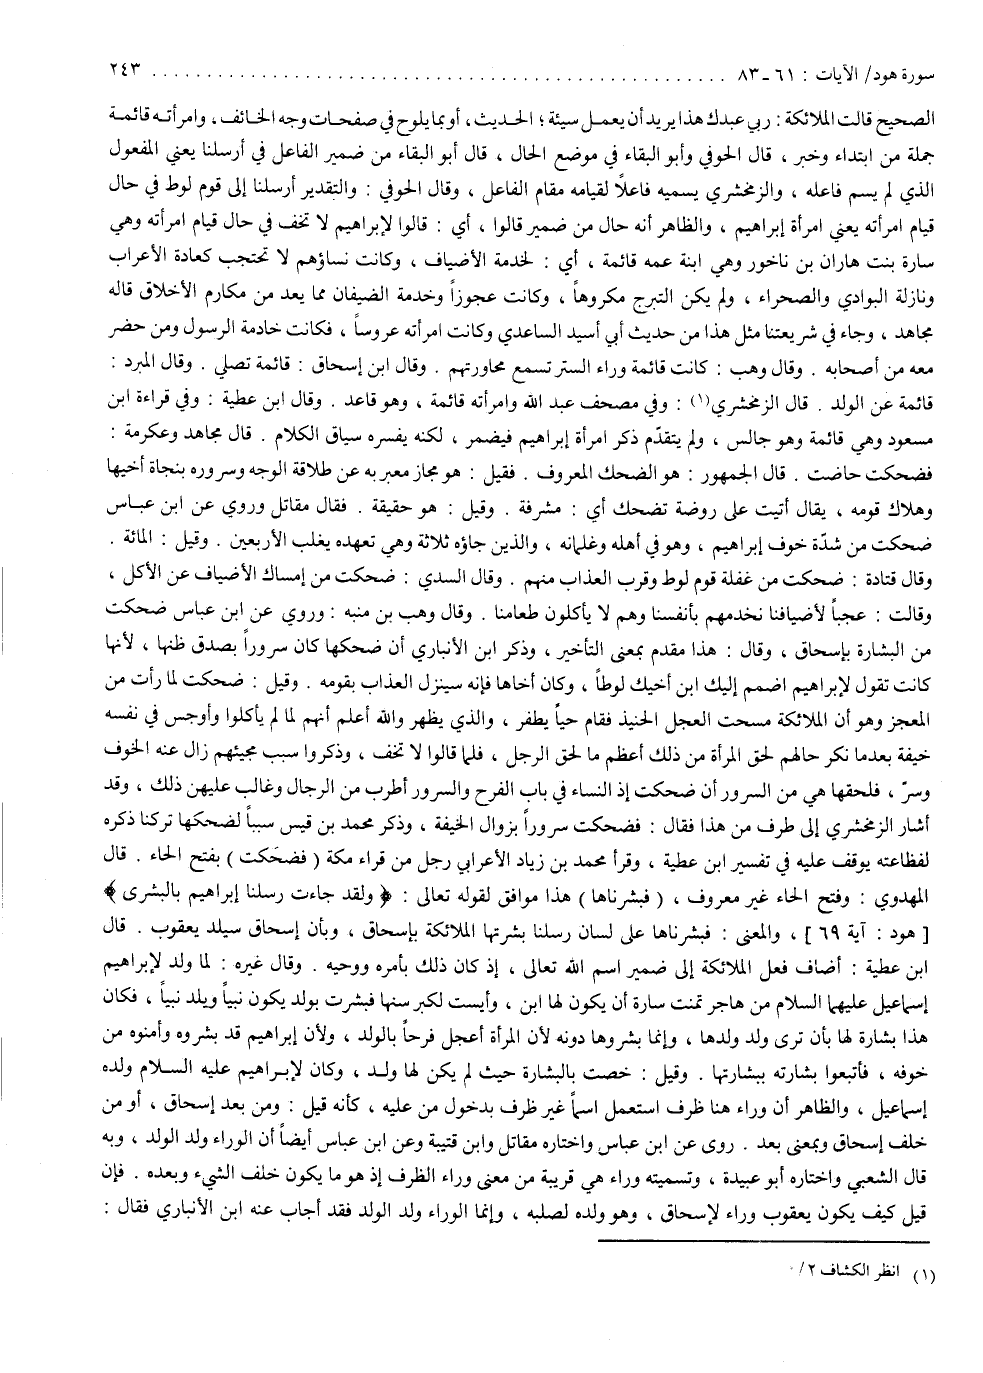 سورة هود/ الآيات : ٦١ - ٨٣ ........................................................ ٢٤٣
الصحيح قالت الملائكة : ربي عبدك هذا يريد أن يعمل سيئة ؛ الحديث ، أو بما يلوح في صفحات وجه الخائف ، وامرأته قائمة
جملة من ابتداء وخبر ، قال الحوفي وأبو البقاء في موضع الحال ، قال أبو البقاء من ضمير الفاعل في أرسلنا يعني المفعول
الذي لم يسم فاعله ، والزمخشري يسميه فاعلاً لقيامه مقام الفاعل ، وقال الحوفي : والتقدير أرسلنا إلى قوم لوط في حال
قيام امرأته يعني امرأة إبراهيم ، والظاهر أنه حال من ضمير قالوا ، أي : قالوا لإبراهيم لا تخف في حال قيام امرأته وهي
سارة بنت هاران بن ناخور وهي ابنة عمه قائمة ، أي : لخدمة الأضياف ، وكانت نساؤهم لا تحتجب كعادة الأعراب
ونازلة البوادي والصحراء ، ولم يكن التبرج مكروهاً ، وكانت عجوزاً وخدمة الضيفان مما يعد من مكارم الأخلاق قاله
مجاهد ، وجاء في شريعتنا مثل هذا من حديث أبي أسيد الساعدي وكانت امرأته عروساً ، فكانت خادمة الرسول ومن حضر
معه من أصحابه . وقال وهب : كانت قائمة وراء الستر تسمع محاورتهم . وقال ابن إسحاق : قائمة تصلي . وقال المبرد :
قائمة عن الولد . قال الزمخشري(١) : وفي مصحف عبد الله وامرأته قائمة ، وهو قاعد . وقال ابن عطية : وفي قراءة ابن
مسعود وهي قائمة وهو جالس ، ولم يتقدّم ذكر امرأة إبراهيم فيضمر ، لكنه يفسره سياق الكلام . قال مجاهد وعكرمة :
فضحكت حاضت . قال الجمهور : هو الضحك المعروف . فقيل : هو مجاز معبر به عن طلاقة الوجه وسروره بنجاة أخيها
وهلاك قومه ، يقال أتيت على روضة تضحك أي : مشرفة . وقيل : هو حقيقة . فقال مقاتل وروي عن ابن عباس
ضحكت من شدّة خوف إبراهيم ، وهو في أهله وغلمانه ، والذين جاؤه ثلاثة وهي تعهده يغلب الأربعين . وقيل : المائة .
وقال قتادة : ضحكت من غفلة قوم لوط وقرب العذاب منهم . وقال السدي : ضحكت من إمساك الأضياف عن الأكل ،
وقالت : عجباً لأضيافنا نخدمهم بأنفسنا وهم لا يأكلون طعامنا . وقال وهب بن منبه : وروي عن ابن عباس ضحكت
من البشارة بإسحاق ، وقال : هذا مقدم بمعنى التأخير ، وذكر ابن الأنباري أن ضحكها كان سروراً بصدق ظنها ، لأنها
كانت تقول لإبراهيم اضمم إليك ابن أخيك لوطاً ، وكان أخاها فإنه سينزل العذاب بقومه . وقيل : ضحكت لما رأت من
المعجز وهو أن الملائكة مسحت العجل الحنيذ فقام حياً يطفر ، والذي يظهر والله أعلم أنهم لما لم يأكلوا وأوجس في نفسه
خيفة بعدما نكر حالهم لحق المرأة من ذلك أعظم ما لحق الرجل ، فلما قالوا لا تخف ، وذكروا سبب مجيئهم زال عنه الخوف
وسرّ ، فلحقها هي من السرور أن ضحكت إذ النساء في باب الفرح والسرور أطرب من الرجال وغالب عليهن ذلك ، وقد
أشار الزمخشري إلى طرف من هذا فقال : فضحكت سروراً بزوال الخيفة ، وذكر محمد بن قيس سبباً لضحكها تركنا ذكره
لفظاعته يوقف عليه في تفسير ابن عطية ، وقرأ محمد بن زياد الأعرابي رجل من قراء مكة ( فضحَكت ) بفتح الحاء . قال
المهدوي : وفتح الحاء غير معروف ، ( فبشرناها ) هذا موافق لقوله تعالى : ﴿ ولقد جاءت رسلنا إبراهيم بالبشرى ﴾
[ هود : آية ٦٩ ] ، والمعنى : فبشرناها على لسان رسلنا بشرتها الملائكة بإسحاق ، وبأن إسحاق سيلد يعقوب . قال
ابن عطية : أضاف فعل الملائكة إلى ضمير اسم الله تعالى ، إذ كان ذلك بأمره ووحيه . وقال غيره : لما ولد لإبراهيم
إسماعيل عليهما السلام من هاجر تمنت سارة أن يكون لها ابن ، وأيست لكبر سنها فبشرت بولد يكون نبياً ويلد نبياً ، فكان
هذا بشارة لها بأن ترى ولد ولدها ، وإنما بشروها دونه لأن المرأة أعجل فرحاً بالولد ، ولأن إبراهيم قد بشروه وأمنوه من
خوفه ، فأتبعوا بشارته ببشارتها . وقيل : خصت بالبشارة حيث لم يكن لها ولد ، وكان لإبراهيم عليه السلام ولده
إسماعيل ، والظاهر أن وراء هنا ظرف استعمل اسماً غير ظرف بدخول من عليه ، كأنه قيل : ومن بعد إسحاق ، أو من
خلف إسحاق وبمعنى بعد . روى عن ابن عباس واختاره مقاتل وابن قتيبة وعن ابن عباس أيضاً أن الوراء ولد الولد ، وبه
قال الشعبي واختاره أبو عبيدة ، وتسميته وراء هي قريبة من معنى وراء الظرف إذ هو ما يكون خلف الشيء وبعده . فإن
قيل كيف يكون يعقوب وراء لإسحاق ، وهو ولده لصلبه ، وإنما الوراء ولد الولد فقد أجاب عنه ابن الأنباري فقال :
(١) انظر الكشاف ٢/